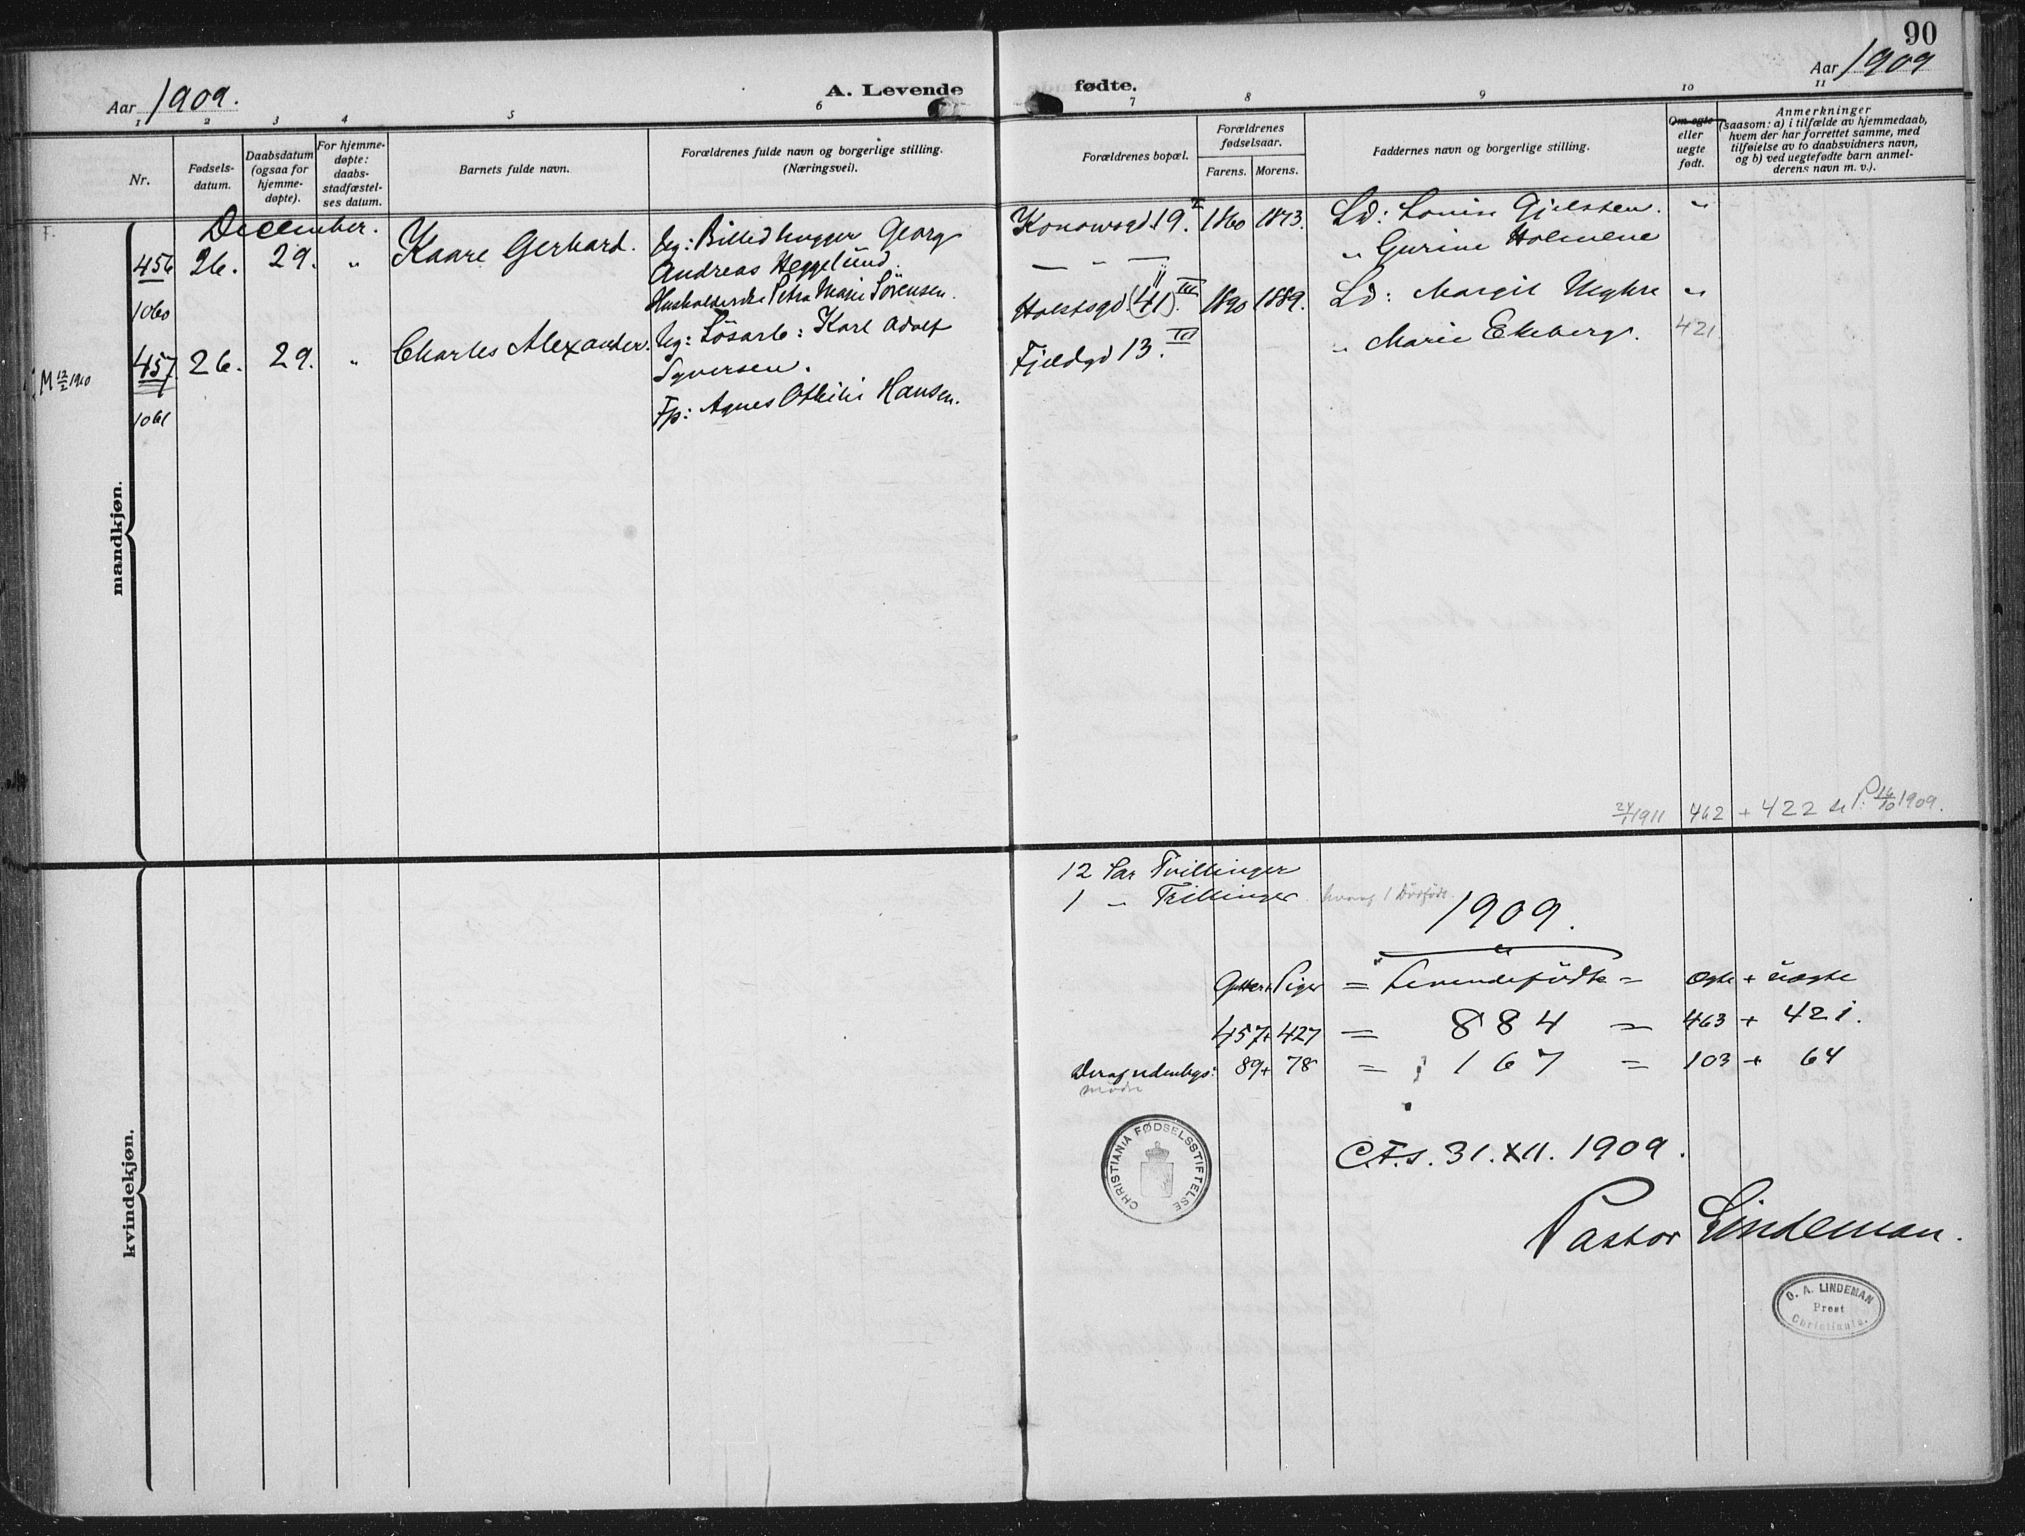 90
Aar 1909.
A. Levende fødte.
Aar 1909
1 2 3 4 5 6 7 8 9 10 11
Nr.
Fødsels-
datum.
Daabsdatum
(ogsaa for
hjemme-
døpte).
For hjemme-
døpte:
daabs-
stadfæstel-
ses datum.
Barnets fulde navn.
Forældrenes fulde navn og borgerlige stilling.
(Næringsvei).
Forældrenes bopæl.
Forældrenes
fødselsaar.
Farens. Morens.
Faddernes navn og borgerlige stilling.
Om egte
eller
uegte
født.
Anmerkninger
(saasom: a) i tilfælde av hjemmedaab,
hvem der har forrettet samme, med
tilføielse av to daabsvidners navn,
og b) ved uegtefødte barn anmel-
derens navn m. v.).
December.
F.
mandkjøn.
456 26. 29. " Kaare Gerhard.
1060
Ug: Billedhugger Georg
Andreas Heggelund.
Husholderske Petra Marie Sörensen.
Konowsgd. 19. I 1860 1873.
Ld: Louise Gjelsten. "
" Gurine Holmene
M 12/2 1910
457 26. 29. " Charles Alexander.
1061
Ug: Løsarb: Karl Adolf
Syversen.
Fp: Agnes Othilie Hansen.
Holstsgd. (41) III. 1890 1889.
Fjeldgd 13. III
Ld: Margit Meghre "
" Marie Ekeberg. 421
24/1 1911 462 + 422 P: 16/10 1909.
kvindekjøn.
12 Par Tvillinger
1 " Trillinger hvoraf 1 Dödfødt.
1909.
Gutter + Piger = Levendefødte = ægte + uægte
457 + 427 = 884 = 463 + 421.
Deraf udenbys: 89 + 78 = 167 = 103 + 64
mødre
CHRISTIANIA FØDSELSSTIFTELSE
C.F.s. 31. XII. 1909.
Pastor Lindeman.
O. A. LINDEMAN
Prest
Christiania.